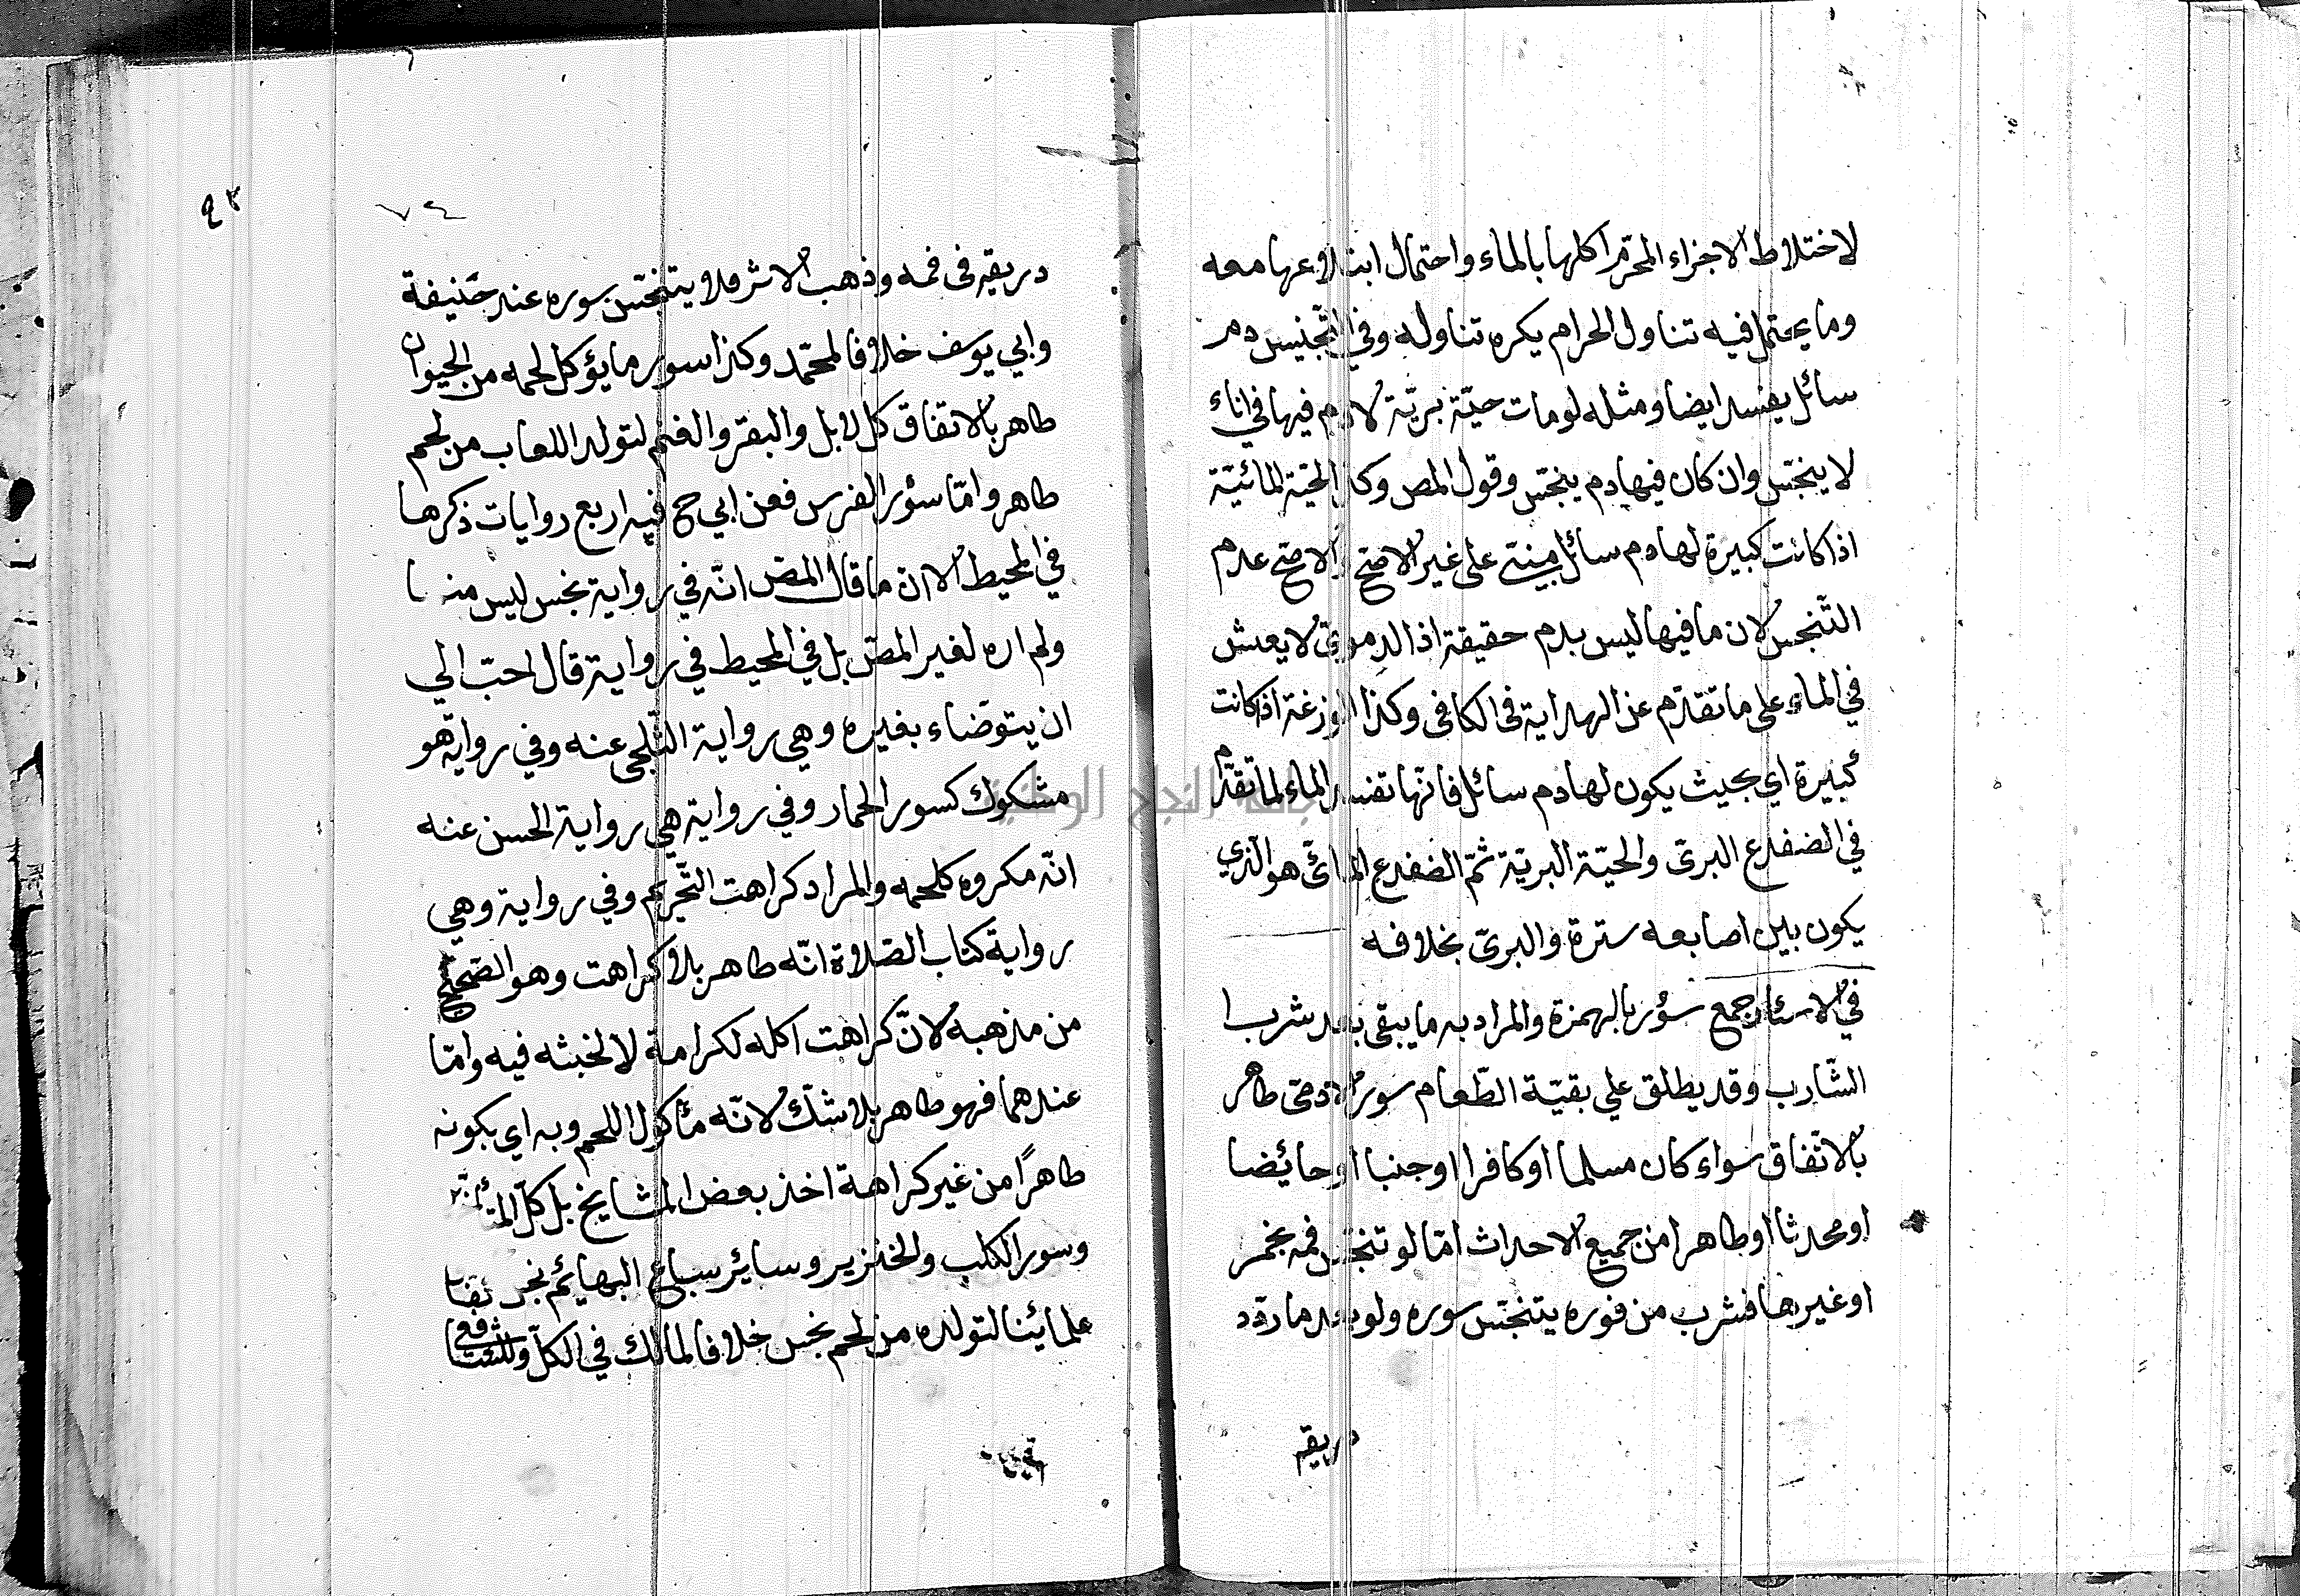 لاختلاط الاجزاء المحرّم اكلها بالماء واحتمال ابتلاعها معه
وما يحتمل فيه تناول الحرام يكره تناوله وفي التجنيس دم
سائل يفسد ايضا ومثله لو مات حيّة بريّة لا دم فيها في اناء
لا ينجّس وان كان فيها دم ينجّس وقول المص وكذا الحيّة المائيّة
اذا كانت كبيرة لها دم سائل مبنيّ على غير الاصحّ والاصحّ عدم
التّنجس لان ما فيها ليس بدم حقيقة اذ الدموي لا يعيش
في الماء على ما تقدّم عن الهداية في الكافي وكذا الوزغة اذا كانت
كبيرة اي بحيث يكون لها دم سائل فانّها تفسد الماء لما تقدّم
في الضفدع البرىّ والحيّة البريّة ثمّ الضفدع المائىّ هو الّذي
يكون بين اصابعه سترة والبرىّ بخلافه
في الاسئار جمع سؤر بالهمزة والمراد به ما يبقى بعد شرب ا
الشّارب وقد يطلق علي بقيّة الطّعام سور الادمىّ طاهر
بالاتّفاق سواء كان مسلما او كافرا او جنبا او حائضا
او محدثا او طاهرا من جميع الاحداث امّا لو تنجّس فمه بخمر
او غيرها فشرب من فوره يتنجّس سوره ولو بعد ما ردّد
ريقه
٩٢
٧٤
دريقه في فمه وذهب الاثر فلا يتنجّس سوره عند حنيفة
وابي يوسف خلافا لمحمّد وكذا سور ما يؤكل لحمه من الحيوان
طاهر بالاتفاق كالابل والبقر والغنم لتولد اللعاب من لحم
طاهر وامّا سؤر الفرس فعن ابي ح فيه اربع روايات ذكرها
في المحيط الا ان ما قال المص انّه في رواية نجس ليس منها
ولم اره لغير المصّ بل في المحيط في رواية قال احبّ الي
ان يتوضّاء بغيره وهي رواية الثّلجي عنه وفي رواية هو
مشكوك كسور الحمار وفي رواية هي رواية الحسن عنه
انّه مكروه كلحمه والمراد كراهت التّحريم وفي رواية وهي
رواية كتاب الصّلاة انّه طاهر بلا كراهت وهو الصّحيح
من مذهبه لانّ كراهت اكله لكرامة لا لخبثه فيه وامّا
عندهما فهو طاهر بلا شكّ لانّه مأكول اللحم وبه اي بكونه
طاهرًا من غير كراهة اخذ بعض المشايخ بل كلّ
وسور الكلب والخنزير وسائر سباع البهائم نجس
علمائنا لتولده من لحم نجس خلافا لمالك في الكلّ وللشافعي